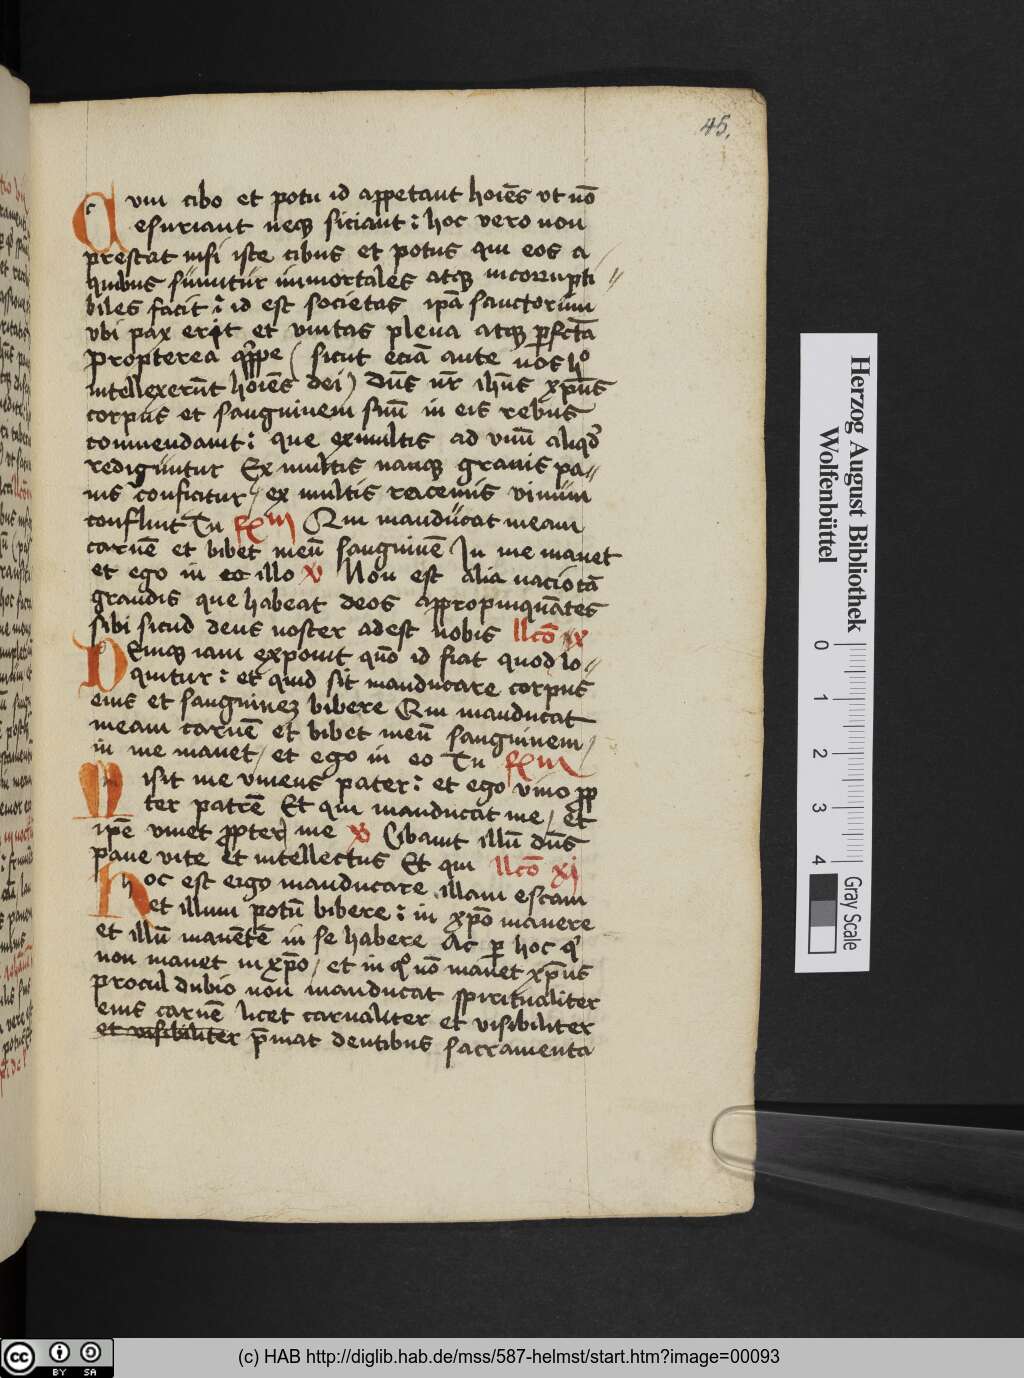 45.
Cum cibo et potu id appetant hoīēs vt nō
esuriant neqꝫ siciant : hoc vero non
prestat nisi iste cibus et potus qui eos a
quibus sumitur immortales atqꝫ incorrupti //
biles facit : id est societas ipā sanctorum
vbi pax erit et vnitas plena atqꝫ ꝑfctā
Propterea qͥppe ( sicut eciā ante nos hͦ
intellexerūt hoīēs dei ) dūs nr̄ ihūs xp̄us
corpus et sanguinem suū in eis rebus
commendauit : que ex multis ad vnū aliqͦd
rediguntur Ex multis namqꝫ granis pa //
nis conficitur / ex multis racemis vinum
confluit Tu Qui manducat meam
carnē et bibet meū sanguinē In me manet
et ego in eo illo V Non est alia naciotā
grandis que habeat deos appropinquātes
sibi sicud deus noster adest nobis llcō x
Deniqꝫ iam exponit quō id fiat quod lo //
quitur : et quid sit manducare corpus
eius et sanguineꝫ bibere Qui manducat
meam carnē et bibet meū sanguinem /
in me manet / et ego in eo Tu
Misit me viuens pater : et ego viuo ꝓp
ter patrē Et qui manducat me / et
ipē viuet ꝓpter me V Cibauit illū dūs
pane vite et intellectus Et qui llcō xj
Hoc est ergo manducare illam escam
et illum potū bibere : in xp̄o manere
et illū manētē in se habere Ac ꝑ hoc qͥ
non manet in xp̄o / et in qͦ nō manet xp̄us
procul dubio non manducat spiritualiter
eius carnē licet carnaliter et visibiliter
et visibiliter p̄mat dentibus sacramenta
Herzog August Bibliothek
Wolfenbüttel
0 1 2 3 4
Gray Scale
cc BY SA
(c) HAB http://diglib.hab.de/mss/587-helmst/start.htm?image=00093